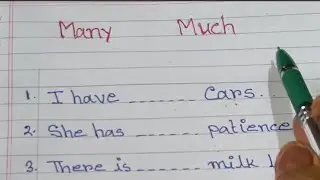 Many Much
1. I have ------ Cars.
2. She has ------ patience
3. There is ------ milk